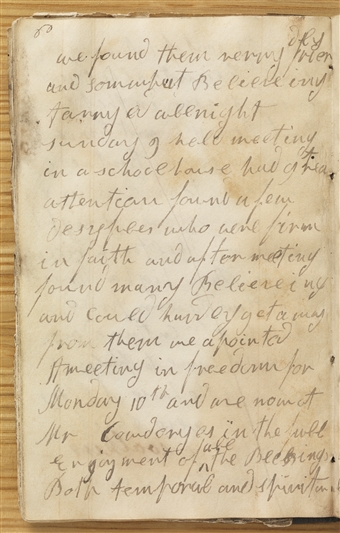 60
we found them verry frien
dly
and somewhat Believeing
Tarry'd all night
sunday 9 held meeting
in a schoolhouse had grea
t
attention found a few
desiplees who were firm
in faith and after meeting
found many Believeing
and could hardly get away
from them we apointed
A meeting in freedom for
Monday 10th and are now at
Mr Cowderyes in the full
enjoyment of all the Blessings
Both temporal and spiritu